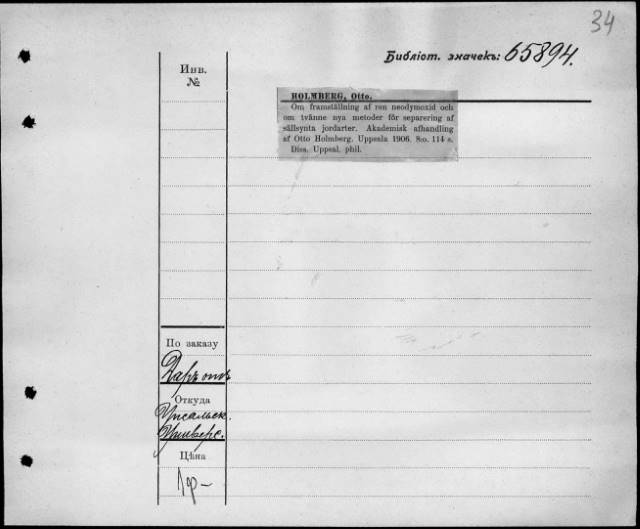 34
Библіот. значекъ: 65894.
Инв.
№
HOLMBERG, Otto.
Om framställning af ren neodymoxid och
om tvänne nya metoder för separering af
sällsynta jordarter. Akademisk afhandling
af Otto Holmberg. Uppsala 1906. 8:o. 114 s.
Diss. Uppsal. phil.
По заказу
Откуда
Упсальск.
Универс.
Цѣна